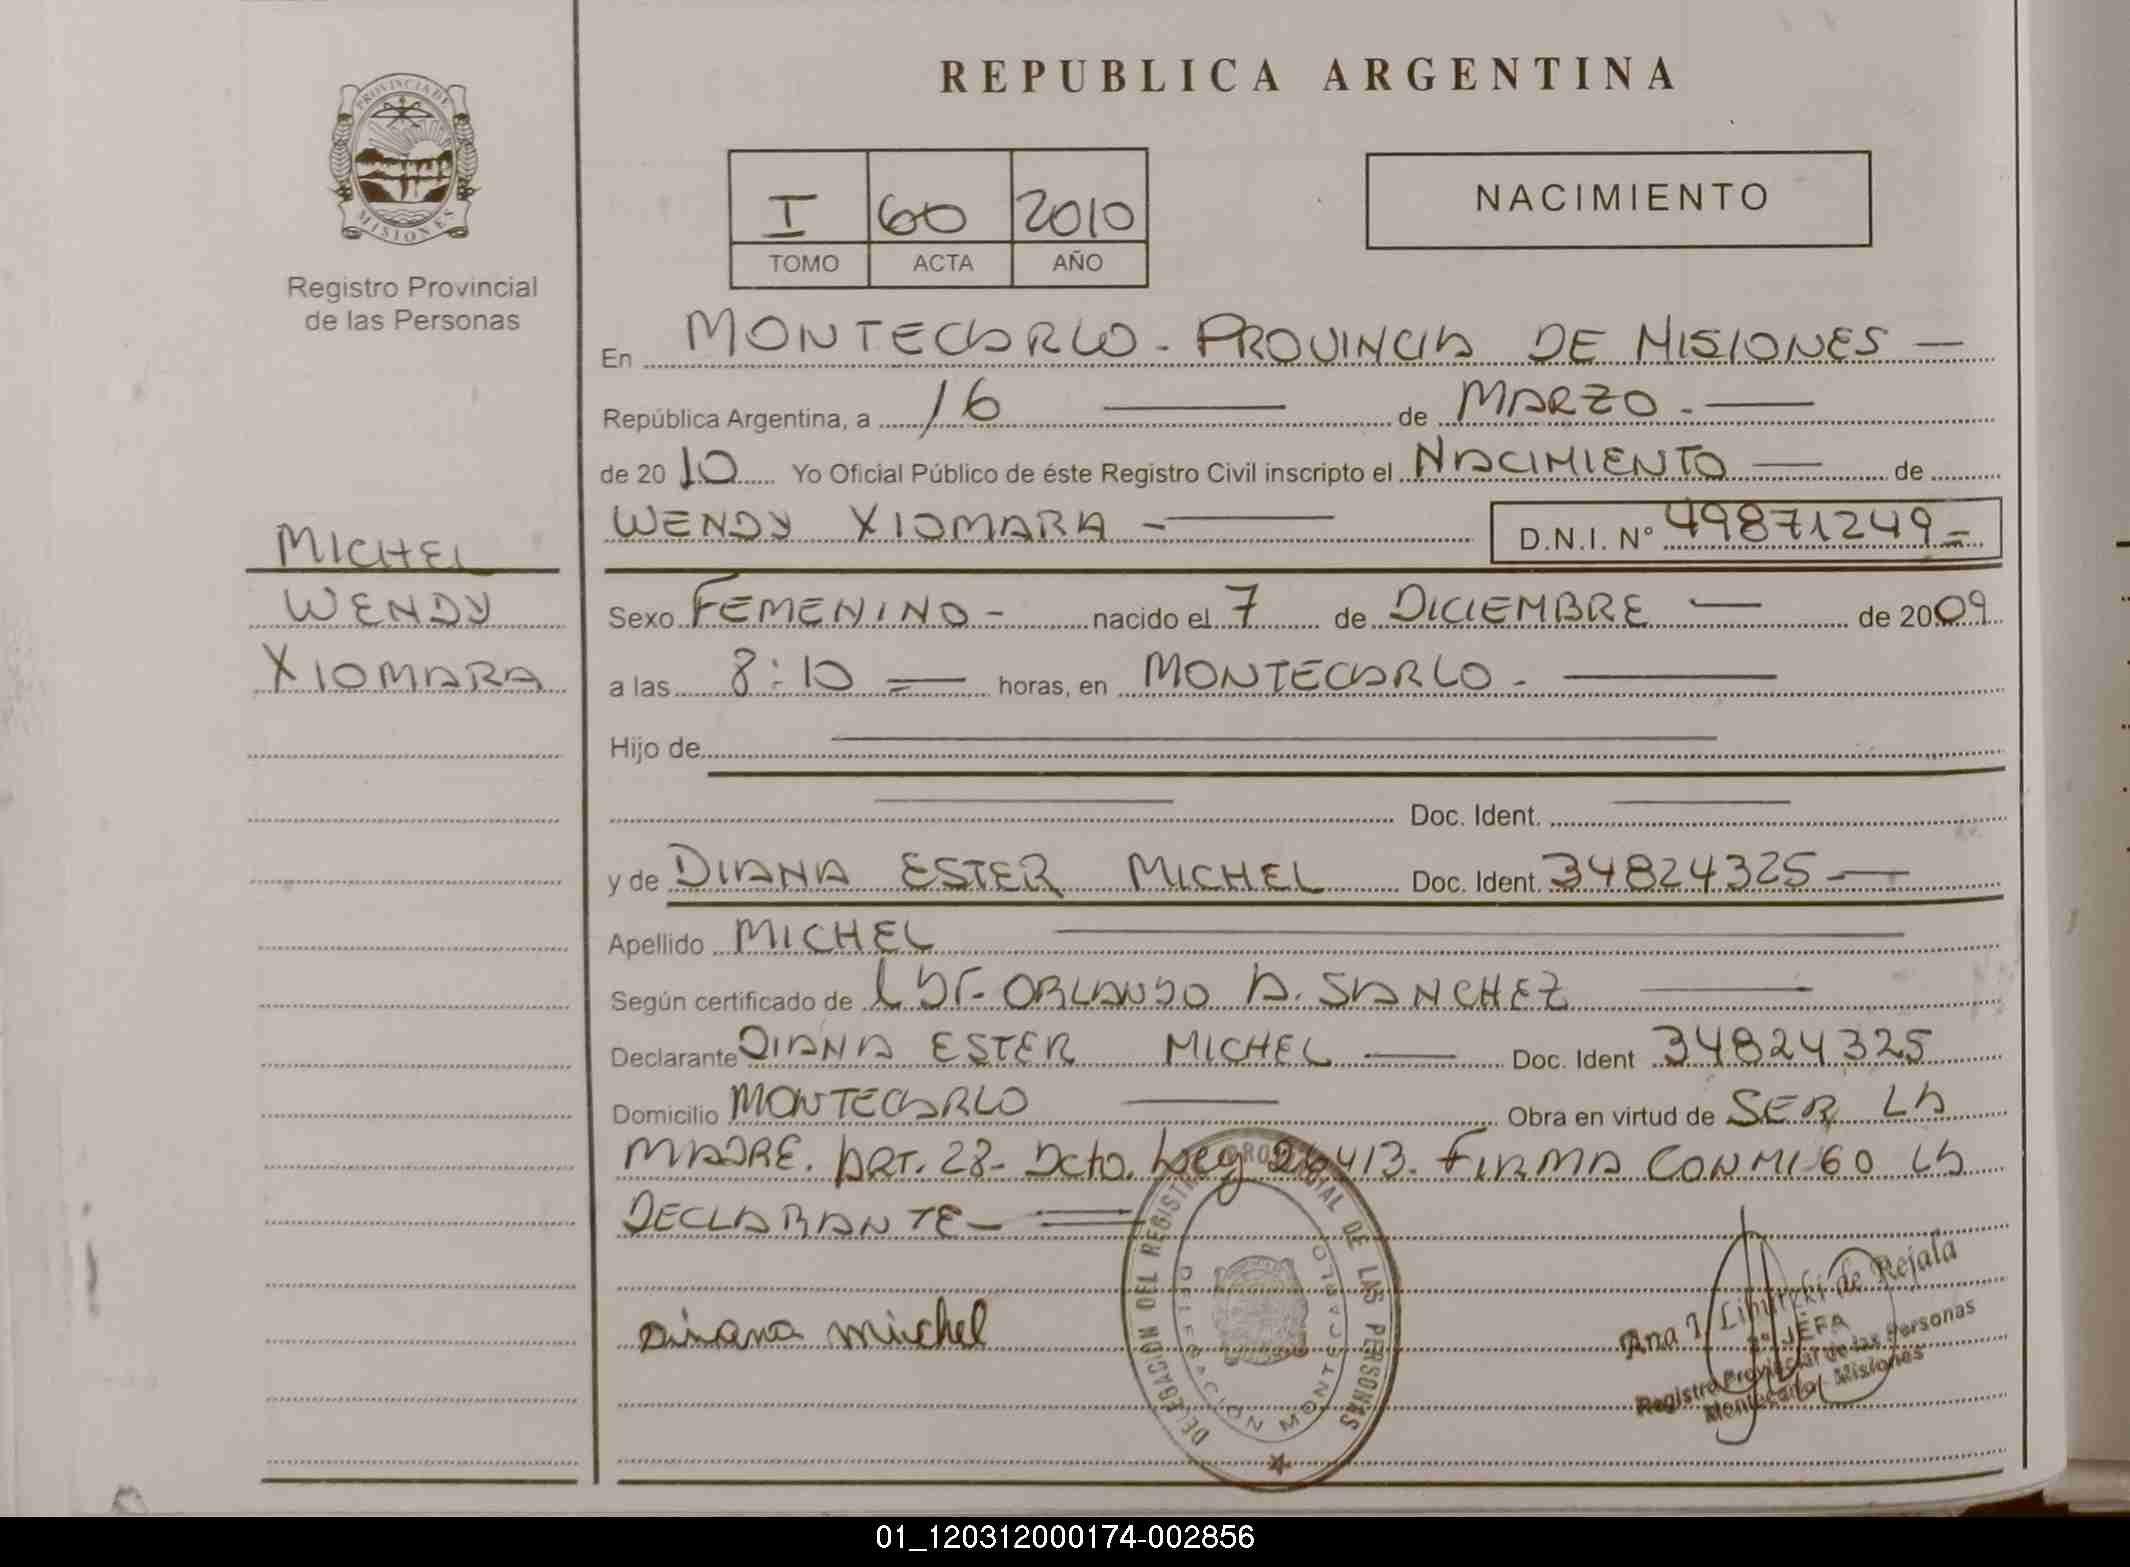 PROVINCIA DE
MISIONES
Registro Provincial
de las Personas
MICHEL
WENDY
XIOMARA
REPUBLICA ARGENTINA
I 60 2010
TOMO ACTA AÑO
NACIMIENTO
En MONTECARLO - PROVINCIA DE MISIONES —
República Argentina, a 16 — de MARZO. —
de 2010 Yo Oficial Público de éste Registro Civil inscripto el NACIMIENTO — de
WENDY XIOMARA — D.N.I. Nº 49871249=
Sexo FEMENINO - nacido el 7 de DICIEMBRE — de 2009
a las 8:10 = horas, en MONTECARLO - —
Hijo de —
— Doc. Ident. —
y de DIANA ESTER MICHEL Doc. Ident. 34824325 —
Apellido MICHEL —
Según certificado de ORLANDO A. SANCHEZ —
Declarante DIANA ESTER MICHEL — Doc. Ident 34824325
Domicilio MONTECARLO — Obra en virtud de SER LA
MADRE. ART. 28- Dcto. Ley 26413. FIRMA CONMIGO LA
DECLARANTE — =
Diana michel
DELEGACION DEL REGISTRO PROVINCIAL DE LAS PERSONAS
DELEGACION MONTECARLO
Ana de Rejala
2º JEFA
Registro Provincial de las Personas
Montecarlo - Misiones
01_120312000174-002856